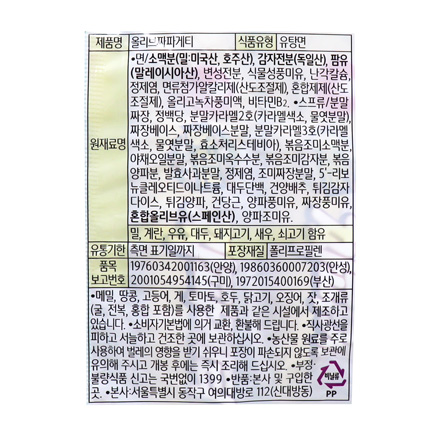 제품명 올리브짜파게티 식품유형 유탕면
원재료명
•면/소맥분(밀:미국산, 호주산), 감자전분(독일산), 팜유
(말레이시아산), 변성전분, 식물성풍미유, 난각칼슘,
정제염, 면류첨가알칼리제(산도조절제), 혼합제제(산도
조절제), 올리고녹차풍미액, 비타민B₂. •스프류/분말
짜장, 정백당, 분말카라멜2호(카라멜색소, 물엿분말),
짜장베이스, 짜장베이스분말, 분말카라멜3호(카라멜
색소, 물엿분말, 효소처리스테비아), 볶음조미소맥분,
야채오일분말, 볶음조미옥수수분, 볶음조미감자분, 볶음
양파분, 발효사과분말, 정제염, 조미짜장분말, 5'-리보
뉴클레오티드이나트륨, 대두단백, 건양배추, 튀김감자
다이스, 튀김양파, 건당근, 양파풍미유, 짜장풍미유,
혼합올리브유(스페인산), 양파조미유.
밀, 계란, 우유, 대두, 돼지고기, 새우, 쇠고기 함유
유통기한 측면 표기일까지 포장재질 폴리프로필렌
품목 19760342001163(안양), 19860360007203(안성),
보고번호 2001054954145(구미), 1972015400169(부산)
•메밀, 땅콩, 고등어, 게, 토마토, 호두, 닭고기, 오징어, 잣, 조개류
(굴, 전복, 홍합 포함)를 사용한 제품과 같은 시설에서 제조하고
있습니다. •소비자기본법에 의거 교환, 환불해 드립니다. •직사광선을
피하고 서늘하고 건조한 곳에 보관하십시오. •농산물 원료를 주로
사용하여 벌레의 영향을 받기 쉬우니 포장이 파손되지 않도록 보관에
유의해 주시고 개봉 후에는 즉시 조리해 드십시오. •부정·
불량식품 신고는 국번없이 1399 •반품:본사 및 구입한
곳. •본사:서울특별시 동작구 여의대방로 112(신대방동)
비닐류
PP